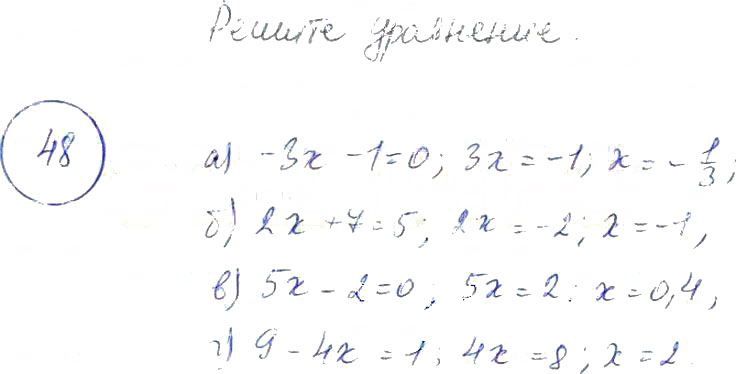 Решите уравнение.
48
а) -3x - 1 = 0; 3x = -1; x = -1/3;
б) 2x + 7 = 5; 2x = -2; x = -1,
в) 5x - 2 = 0; 5x = 2; x = 0,4,
г) 9 - 4x = 1; 4x = 8; x = 2.